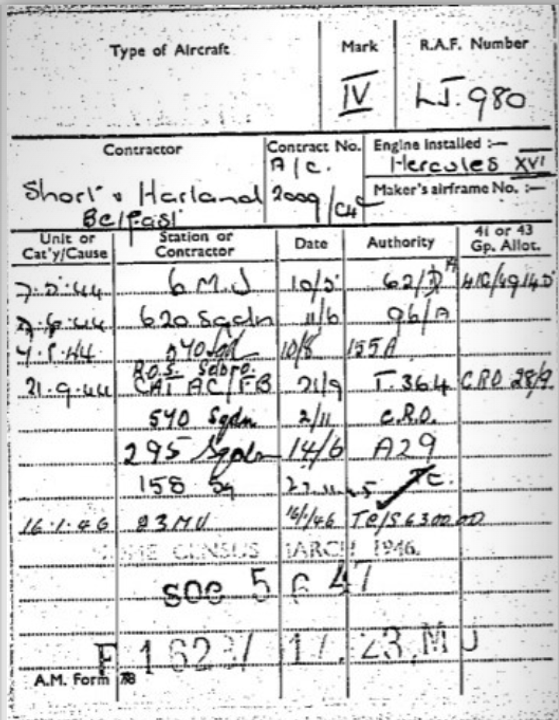 Type of Aircraft Mark R.A.F. Number
IV LJ.980
Contractor Contract No. Engine Installed :—
A/c. Hercules XVI
Short & Harland 2009/C4C Maker's airframe No. :—
Belfast
Unit or Cat'y/Cause Station or Contractor Date Authority 41 or 43 Gp. Allot.
6 M.U 10/5 62/
620 Sqdn 11/6 96/A
Sqd 10/8 155A
R.O.S.
21.9.44 CAT AC/FB 21/9 T.364 CRO 28/9
570 Sqdn 2/11 C.R.O.
295 Sqdn 14/6 A29
158 Sq TC.
16.1.46 23MU 16/1/46
CENSUS MARCH 1946.
SOC 5 6 47
F 1623/ 17. 23.MU
A.M. Form 78